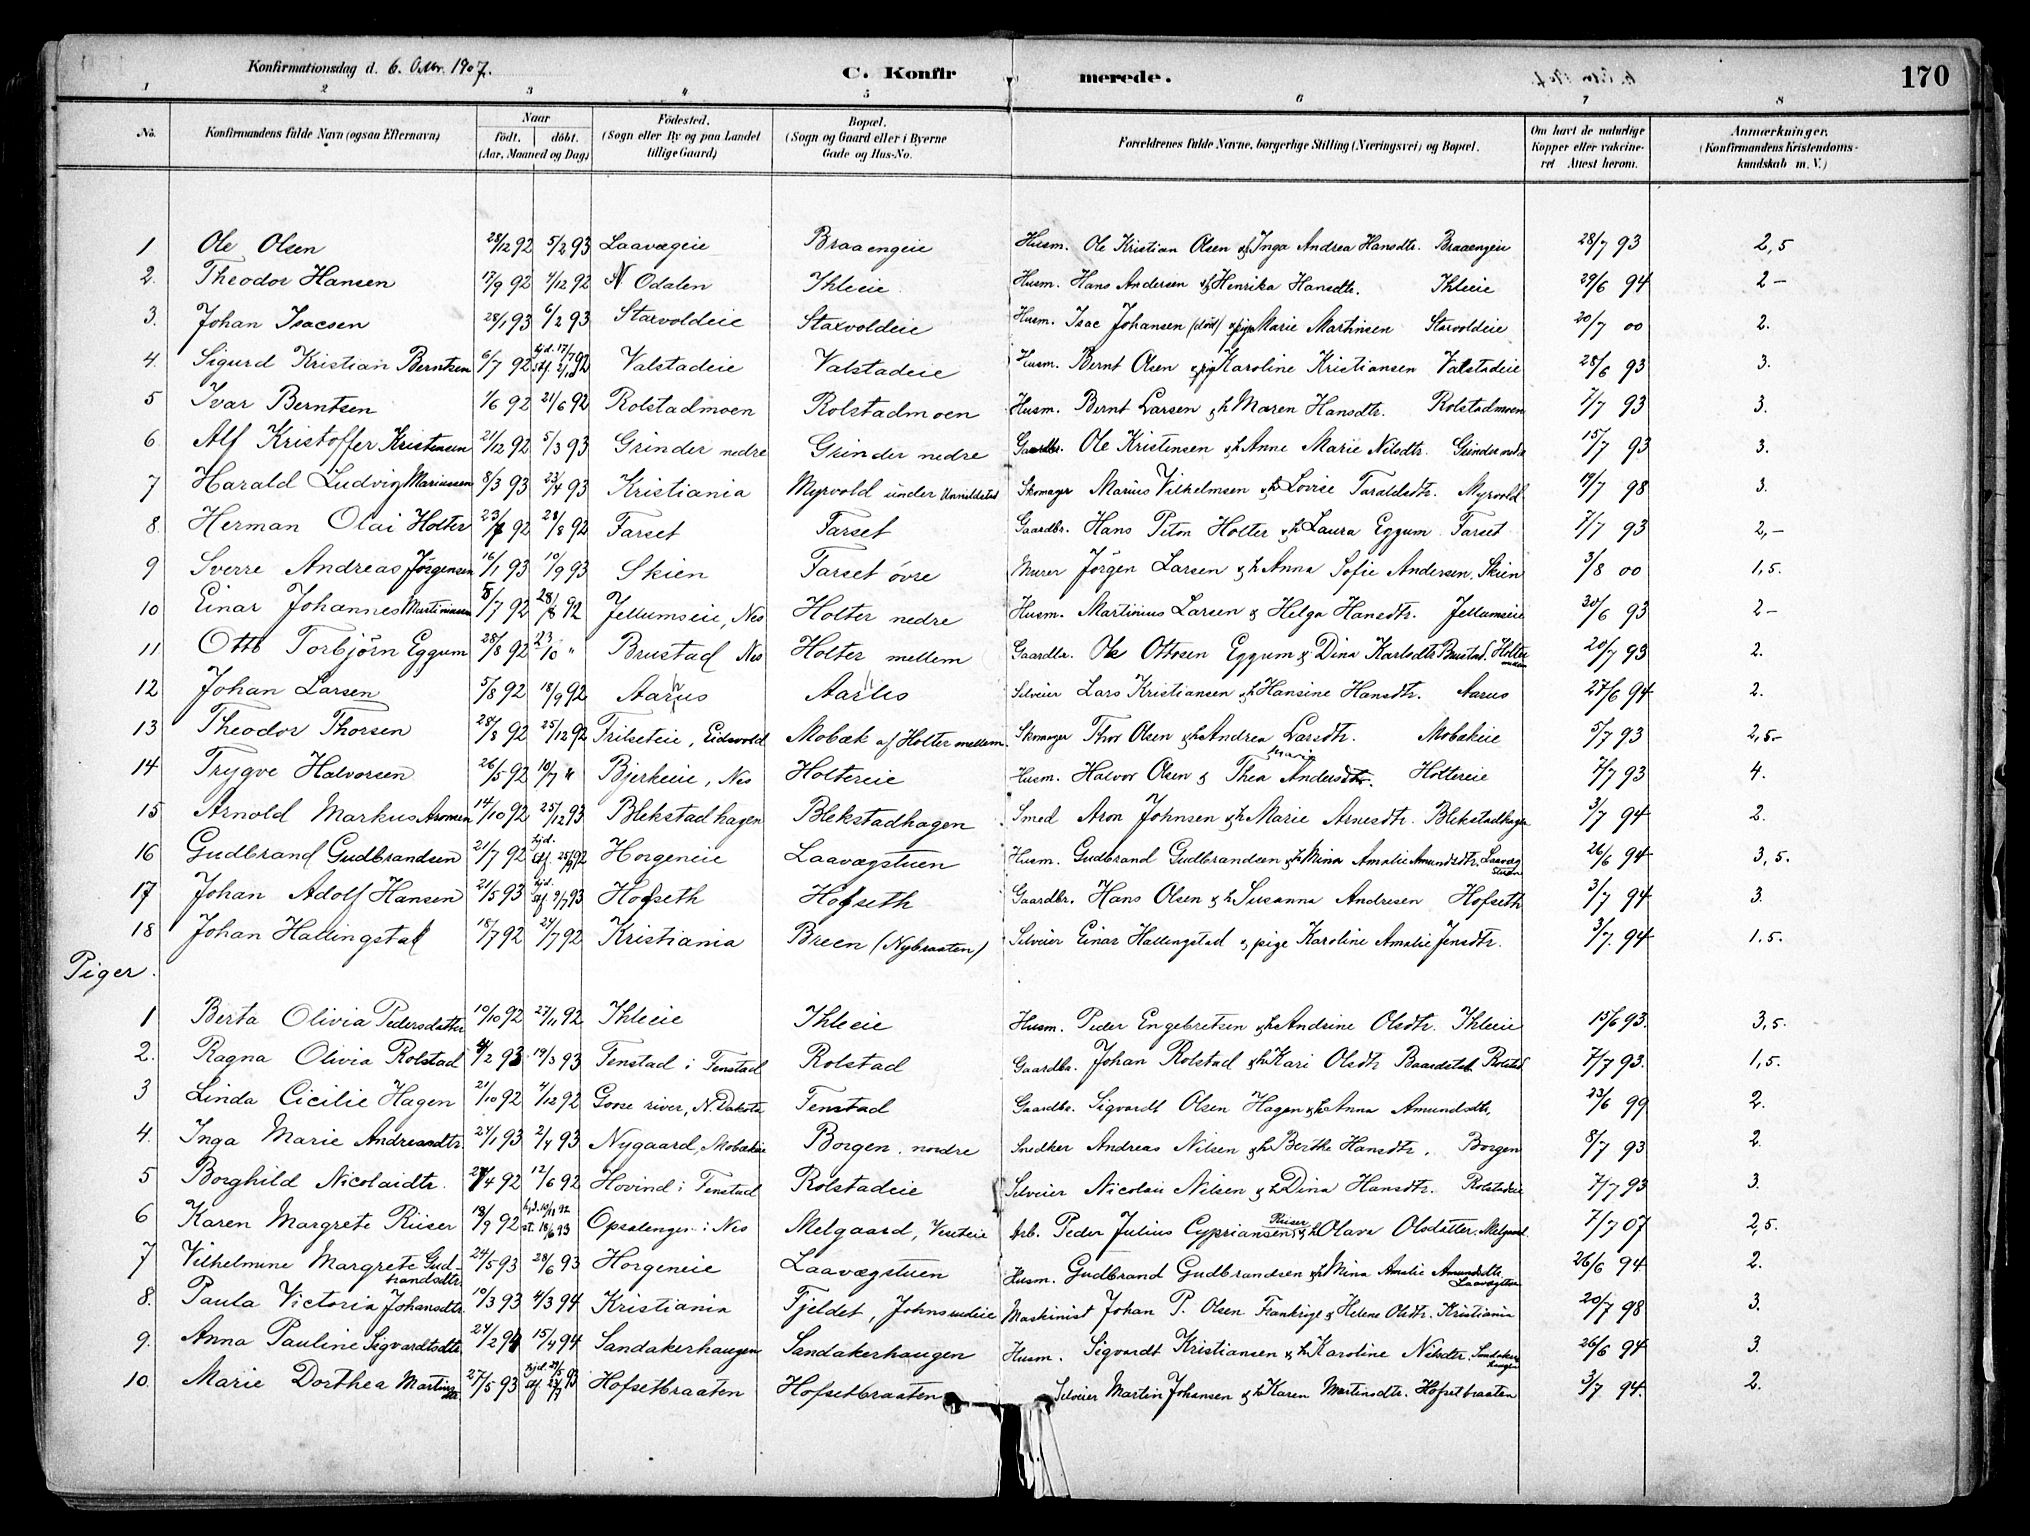 Konfirmationsdag d. 6. Octbr. 1907. C. Konfirmerede. 170
1 2 3 4 5 6 7 8
No. Konfirmandens fulde Navn (ogsaa Efternavn) Naar født. døbt. (Aar, Maaned og Dag) Fødested. (Sogn eller By og paa Landet tillige Gaard) Bopæl. (Sogn og Gaard eller i Byerne Gade og Hus-No. Forældrenes fulde Navne, borgerlige Stilling (Næringsvei) og Bopæl. Om havt de naturlige Kopper eller vakcineret Attest herom. Anmærkninger. (Konfirmandens Kristendomskundskab m. V.)
1 Ole Olsen 28/12 92 5/2 93 Laavægeie Braaengeie Husm. Ole Kristian Olsen & h Inga Andrea Hansdtr. Braaengeie 28/7 93 2,5
2. Theodor Hansen 17/9 92 4/12 92 N Odalen Ihleeie Husm. Hans Andersen & h Henrika Hansdtr. Ihleeie 29/6 94 2 –
3. Johan Isacsen 28/1 93 6/2 93 Starvoldeie Starvoldeie Husm. Isac Johansen (død) & pige Marie Martinsen Starvoldeie 20/7 00 2.
4. Sigurd Kristian Berntsen 6/7 92 hjd. 17/7 92 Valstadeie Valstadeie Husm. Bernt Olsen & pig Karoline Kristiansen Valstadeie 28/6 93 3.
5 Ivar Berntsen 1/6 92 21/6 92 Rolstadmoen Rolstadmoen Husm. Bernt Larsen & h Maren Hansdtr. Rolstadmoen 7/7 93 3.
6 Alf Kristoffer Kristensen 21/12 92 5/3 93 Grinder nedre Grinder nedre Gaardbr. Ole Kristensen & h Anne Marie Nilsdtr. Grinder nedre 15/7 93 3.
7 Harald Ludvig Mariussen 8/3 93 23/4 93 Kristiania Myrvold under Skomager Marius Vilhelmsen & h Lovise Taraldsdtr. Myrvold 19/7 98 3.
8. Herman Olai Holter 23/7 92 28/8 92 Farset Farset Gaardbr. Hans Peton Holter & h Laura Eggum Farset 7/7 93 2,–
9 Sverre Andreas Jørgensen 16/1 93 10/9 93 Skien Farset øvre Murer Jörgen Larsen & h Anna Sofie Andersen. Skien 3/8 00 1,5.
10 Einar Johannes Martiniussen 5/7 92 28/8 92 Jellumseie, Nes Holter nedre Husm. Martinius Larsen & Helga Hansdtr. Jellumseie 30/6 93 2 –
11 Otto Torbjörn Eggum 28/8 92 23/10 " Brustad Nes Holter mellem Gaardbr. Ole Ottosen Eggum & Dina Karlsdtr Brustad, Holter mellem 20/7 93 2.
12 Johan Larsen 5/8 92 18/9 92 Aarus Aarus Selveier Lars Kristiansen & h Hansine Hansdtr. Aarus 27/6 94 2.
13 Theodor Thorsen 28/8 92 25/12 92 Trilseteie, Eidsvold Mobæk af Holter mellem. Skomager Thor Olsen & h Andrea Larsdtr. Mobækeie 5/7 93 2,5–
14 Trygve Halvorsen 26/5 92 10/7 " Bjerkeeie, Nes Holtereie Husm. Halvor Olsen & Thea Marie Andersdtr. Holtereie 7/7 93 4.
15 Arnold Markus Aronsen 14/10 92 25/12 93 Blekstadhagen Blekstadhagen Smed Aron Johnsen & h Marie Arnesdtr. Blekstadhagen 3/7 94 2.
16 Gudbrand Gudbrandsen 21/7 92 hjd. stf. 25/9 92 Horgeneie Laavægstuen Husm. Gudbrand Gudbrandsen & h Mina Amalie Amundsdtr. Laavægstuen 26/6 94 3,5.
17 Johan Adolf Hansen 21/5 93 hjd. stf. 9/7 93 Hofseth Hofseth Gaardbr. Hans Olsen & h Susanna Andresen Hofseth 3/7 94 3.
18 Johan Hallingstad 18/7 92 24/7 92 Kristiania Breen (Nybraaten) Selveier Einar Hallingstad & pige Karoline Amalie Jensdtr. 3/7. 94 1.5.
Piger.
1 Berta Olivia Pedersdatter 10/10 92 27/11 92 Ihleeie Ihleeie Husm. Peder Engebretsen & h Andrine Olsdtr. Ihleeie 15/6 93. 3,5.
2. Ragna Olivia Rolstad /2 93 19/3 93 Fenstad i Fenstad Rolstad Gaardbr. Johan Rolstad & h Kari Olsdtr Baardstad. Rolstad 7/7 93. 1,5.
3 Linda Cicilie Hagen 21/10 92 4/12 92 Goose river, N. Dakota Fenstad Gaardbr. Sigvardt Olsen Hagen & h Anna Amundsdtr. 23/6 99 2.
4. Inga Marie Andreasdtr. 24/1 93 2/4 93 Nygaard, Mobækeie Borgen, nordre Snedker Andreas Nilsen & h Berthe Hansdtr. Borgen 8/7 93 2.
5 Borghild Nicolaidtr. /4 92 12/6 92 Hovind i Fenstad Rolstadeie Selveier Nicolai Nilsen & h Dina Hansdtr. Rolstadeie 7/7 93 3.
6 Karen Margrete Riiser 18/9 92 hjd. 10/11 92 st. 18/6 93 Opsalengen i Nes Melgaard, Veseteie Arb. Peder Julius Cypriansen Riiser & h Olava Olsdatter. Melgaard 7/7 07 2,5.
7 Vilhelmine Margrete Gudbrandsdtr 24/5 93 28/6 93 Horgeneie Laavægstuen Husm. Gudbrand Gudbrandsen & h Mina Amalie Amundsdtr. Laavægstuen 26/6 94 2.
8. Paula Victoria Johansdtr. 10/3 93 4/3 94 Kristiania Fjeldet, Johnsrudeie Maskinist Johan P. Olsen Frankrige & Helene Olsdtr. Kristiania 20/7 98 3.
9. Anna Pauline Sigvardtsdtr. 24/2 94 15/4 94 Sandakerhaugen Sandakerhaugen Husm. Sigvardt Kristiansen & h Karoline Nilsdtr. Sandakerhaugen 26/6 94 3.
10. Marie Dorthea Martinsdtr 27/5 93 hjd. stf. Hofsetbraaten Hofsetbraaten Selveier Martin Johansen & h Karen Martinsdtr. Hofsetbraaten 3/7 94. 2.